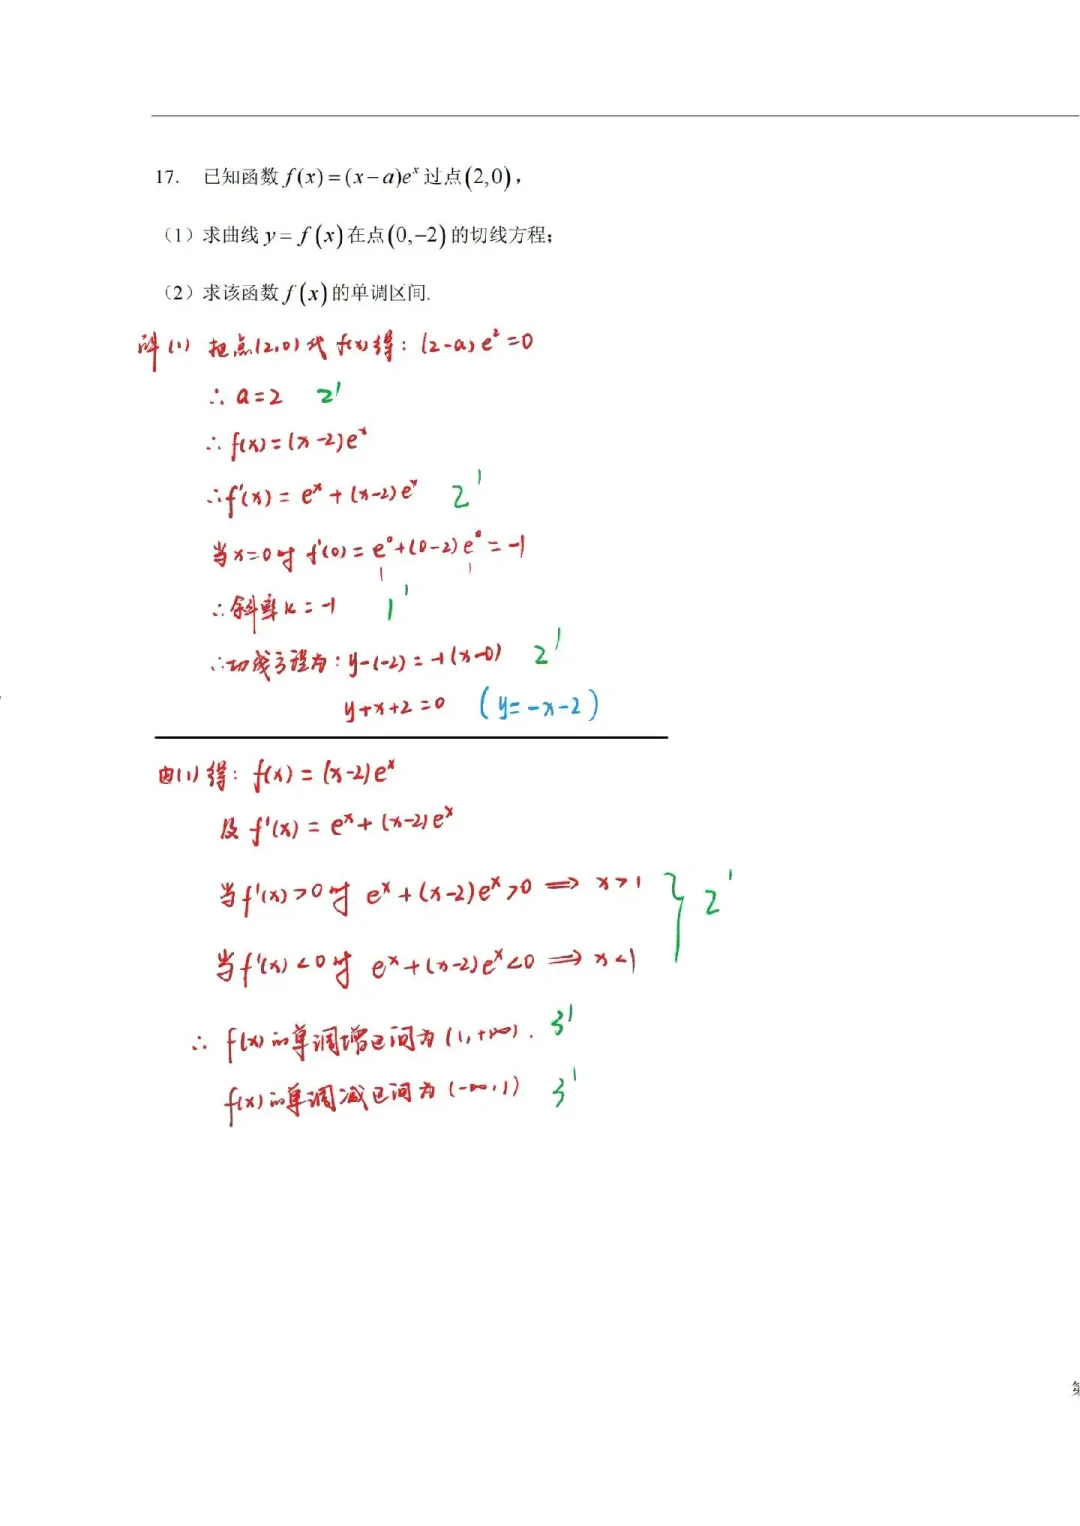 17. 已知函数 f(x)=(x-a)eˣ 过点(2,0)，
（1）求曲线 y= f(x)在点(0,-2)的切线方程；
（2）求该函数 f(x)的单调区间.
解(1) 把点(2,0)代 f(x)得：(2-a)e²=0
∴ a=2 2'
∴ f(x)=(x-2)eˣ
∴f'(x)= eˣ+(x-2)eˣ 2'
当x=0时 f'(0)= e⁰+(0-2)e⁰=-1
1 1
∴斜率k=-1 1'
∴切线方程为：y-(-2)=-1(x-0) 2'
y+x+2=0 (y=-x-2)
由(1)得：f(x)=(x-2)eˣ
及 f'(x)= eˣ+(x-2)eˣ
当f'(x)>0时 eˣ+(x-2)eˣ>0 ⇒ x>1 } 2'
当f'(x)<0时 eˣ+(x-2)eˣ<0 ⇒ x<1
∴ f(x)的单调增区间为(1,+∞). 3'
f(x)的单调减区间为(-∞,1) 3'
第